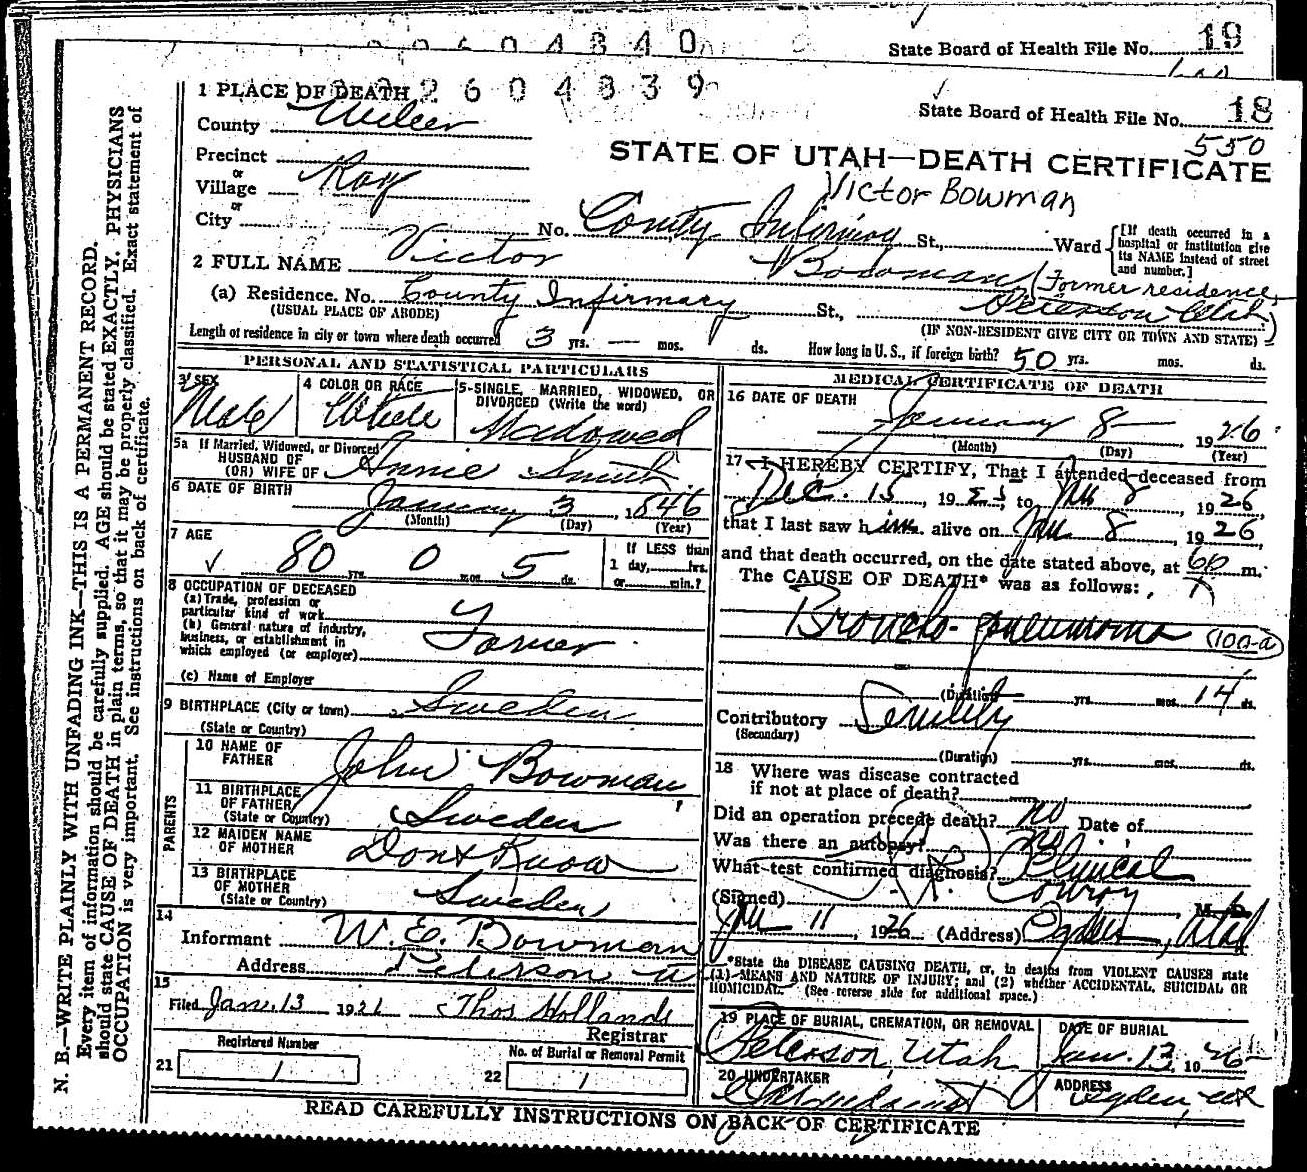 2604840
State Board of Health File No. 19
2604839
State Board of Health File No. 18
550
1 PLACE OF DEATH
County Weber
STATE OF UTAH—DEATH CERTIFICATE
Precinct
or
Village Roy
Victor Bowman
or
City No. County Infirmary St., Ward
[If death occurred in a hospital or institution give its NAME instead of street and number.]
2 FULL NAME Victor Bowman (Former residence
(a) Residence. No. County Infirmary St., Peterson Utah)
(USUAL PLACE OF ABODE) (IF NON-RESIDENT GIVE CITY OR TOWN AND STATE)
Length of residence in city or town where death occurred 3 yrs. — mos. ds. How long in U. S., if foreign birth? 50 yrs. mos. ds.
PERSONAL AND STATISTICAL PARTICULARS
3 SEX Male
4 COLOR OR RACE White
5-SINGLE, MARRIED, WIDOWED, OR DIVORCED (Write the word) Widowed
5a If Married, Widowed, or Divorced
HUSBAND OF
(OR) WIFE OF Annie Smith
6 DATE OF BIRTH January 3, 1846
(Month) (Day) (Year)
7 AGE 80 yrs. 0 mos. 5 ds.
If LESS than
1 day, hrs.
or min.?
8 OCCUPATION OF DECEASED
(a) Trade, profession or
particular kind of work
(b) General nature of industry,
business, or establishment in
which employed (or employer) Farmer
(c) Name of Employer
9 BIRTHPLACE (City or town) Sweden
(State or Country)
PARENTS
10 NAME OF FATHER John Bowman
11 BIRTHPLACE OF FATHER (State or Country) Sweden
12 MAIDEN NAME OF MOTHER Dont Know
13 BIRTHPLACE OF MOTHER (State or Country) Sweden
14
Informant W. E. Bowman
Address Peterson U
15
Filed Jan. 13 1921 Thos Hollands
Registrar
Registered Number
21 1
No. of Burial or Removal Permit
22 1
MEDICAL CERTIFICATE OF DEATH
16 DATE OF DEATH
January 8 1926
(Month) (Day) (Year)
17 I HEREBY CERTIFY, That I attended deceased from
Dec. 15, 1925, to Jan 8, 1926
that I last saw him alive on Jan 8, 1926,
and that death occurred, on the date stated above, at m.
The CAUSE OF DEATH* was as follows:
Broncho-pneumonia (100-a)
(Duration) yrs. mos. 14 ds.
Contributory Senility
(Secondary)
(Duration) yrs. mos. ds.
18 Where was disease contracted
if not at place of death?
Did an operation precede death? no Date of
Was there an autopsy? no
What test confirmed diagnosis? Clinical
(Signed) Conroy M. D.
Jan 11, 1926 (Address) Ogden, Utah
*State the DISEASE CAUSING DEATH, or, in deaths from VIOLENT CAUSES state
(1) MEANS AND NATURE OF INJURY; and (2) whether ACCIDENTAL, SUICIDAL OR
HOMICIDAL. (See reverse side for additional space.)
19 PLACE OF BURIAL, CREMATION, OR REMOVAL
Peterson, Utah
DATE OF BURIAL
Jan. 13, 1926
20 UNDERTAKER
ADDRESS
Ogden, Ut
READ CAREFULLY INSTRUCTIONS ON BACK OF CERTIFICATE
N. B.—WRITE PLAINLY WITH UNFADING INK—THIS IS A PERMANENT RECORD.
Every item of information should be carefully supplied. AGE should be stated EXACTLY. PHYSICIANS
should state CAUSE OF DEATH in plain terms, so that it may be properly classified. Exact statement of
OCCUPATION is very important. See instructions on back of certificate.